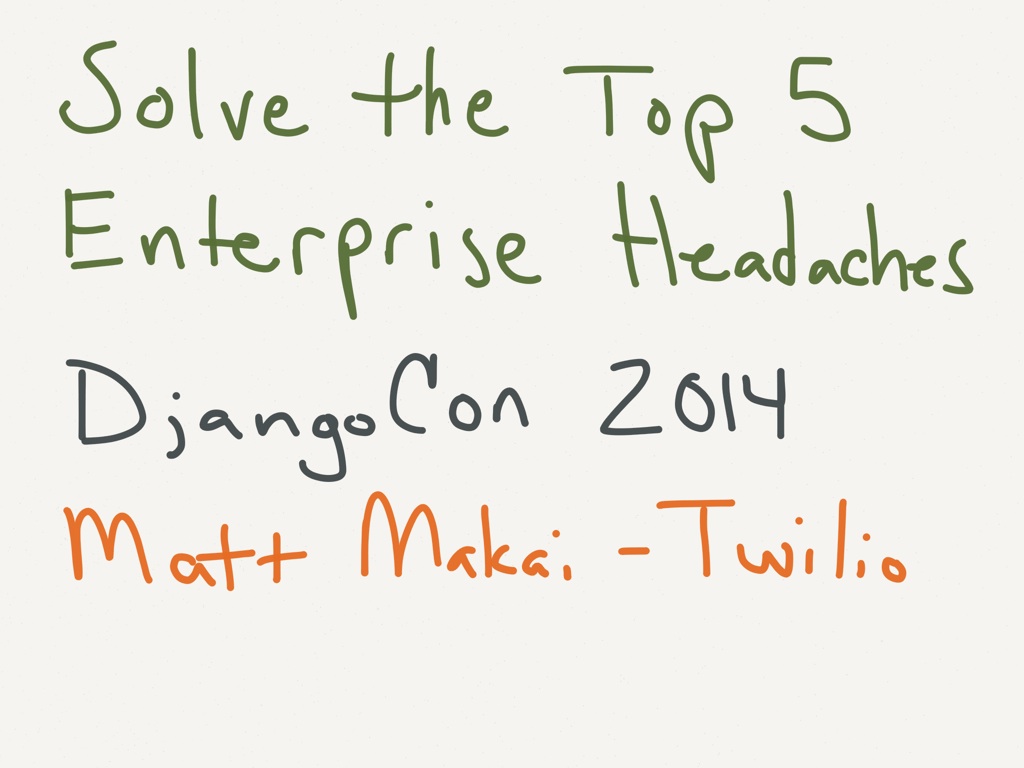 Solve the Top 5
Enterprise Headaches
DjangoCon 2014
Matt Makai - Twilio